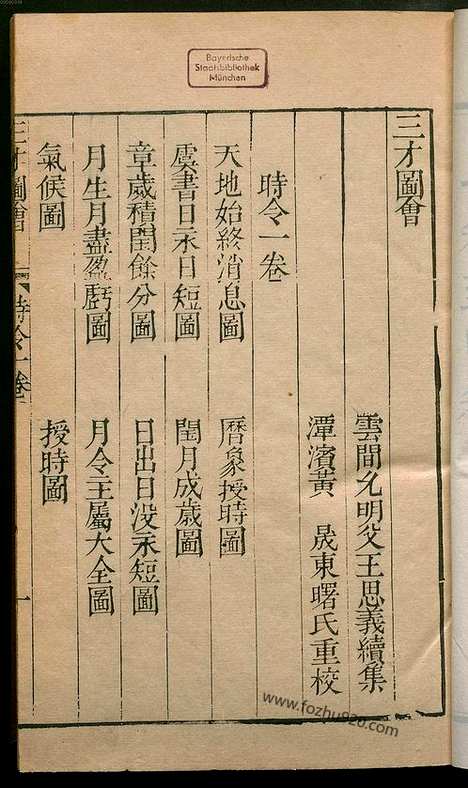 Bayerische
Staatsbibliothek
München
三才圖會
雲間允明父王思義續集
潭濱黃 晟東曙氏重校
時令一卷
天地始終消息圖 曆象授時圖
虞書日永日短圖 閏月成歲圖
章歲積閏餘分圖 日出日没永短圖
月生月盡盈虧圖 月令主屬大全圖
氣候圖 授時圖
三才圖會 時令一卷 一
www.fozhu920.com